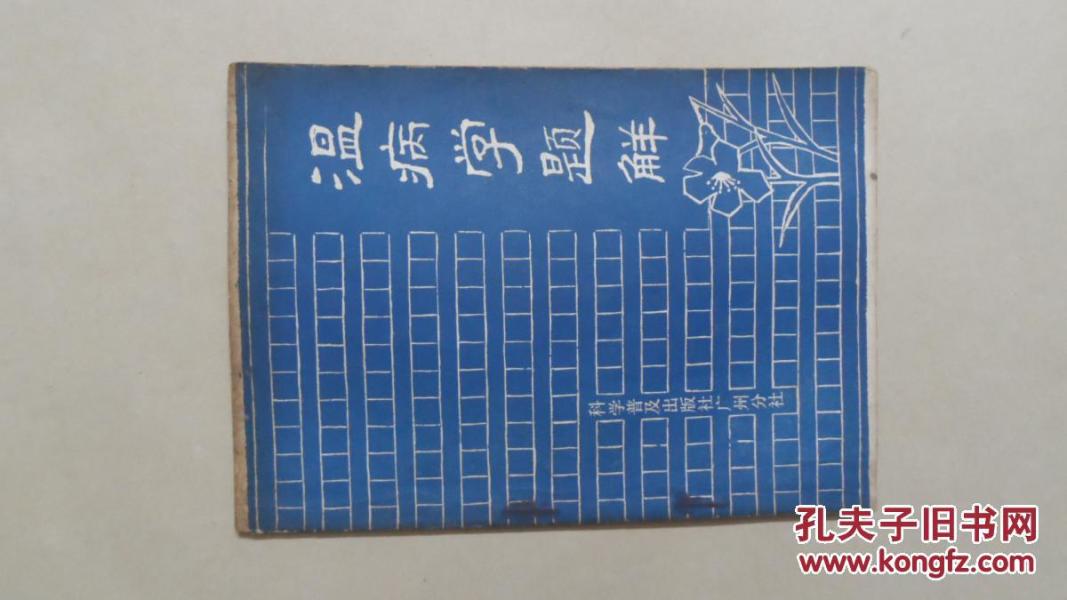 温病学题解
科学普及出版社广州分社
孔夫子旧书网
www.kongfz.com